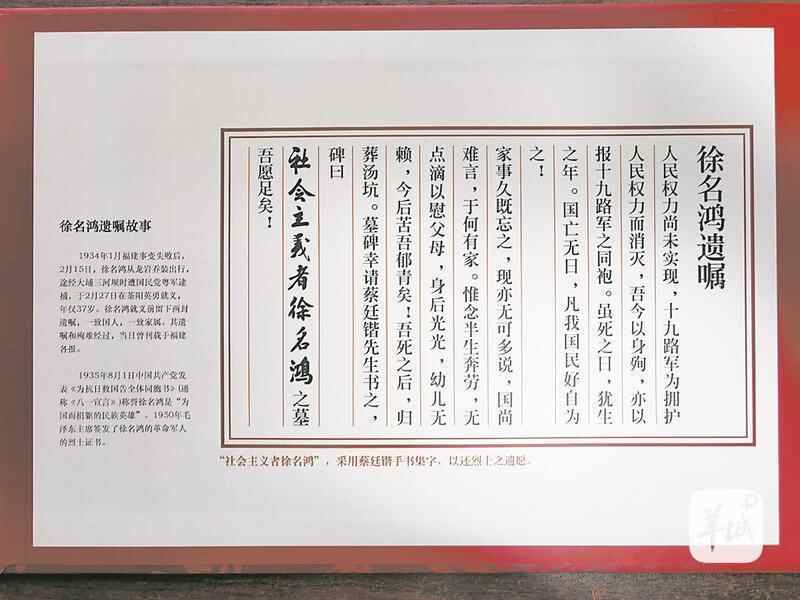 徐名鸿遗嘱
人民权力尚未实现，十九路军为拥护
人民权力而消灭，吾今以身殉，亦以
报十九路军之同袍。虽死之日，犹生
之年。国亡无日，凡我国民好自为
之！
家事久既忘之，现亦无可多说，国尚
难言，于何有家。惟念半生奔劳，无
点滴以慰父母，身后光光，幼儿无
赖，今后苦吾郁青矣！吾死之后，归
葬汤坑。墓碑幸请蔡廷锴先生书之，
碑曰
社会主義者徐名鸿之墓
吾愿足矣！
徐名鸿遗嘱故事
1934年1月福建事变失败后，
2月15日，徐名鸿从龙岩乔装出行，
途经大埔三河坝时遭国民党粤军逮
捕，于2月27日在茶阳英勇就义，
年仅37岁。徐名鸿就义前留下两封
遗嘱，一致国人，一致家属。其遗
嘱和殉难经过，当日曾刊载于福建
各报。
1935年8月1日中国共产党发
表《为抗日救国告全体同胞书》（通
称《八一宣言》）称誉徐名鸿是“为
国而捐躯的民族英雄”。1950年毛
泽东主席签发了徐名鸿的革命军人
的烈士证书。
“社会主义者徐名鸿”，采用蔡廷锴手书集字，以还烈士之遗愿。
羊城